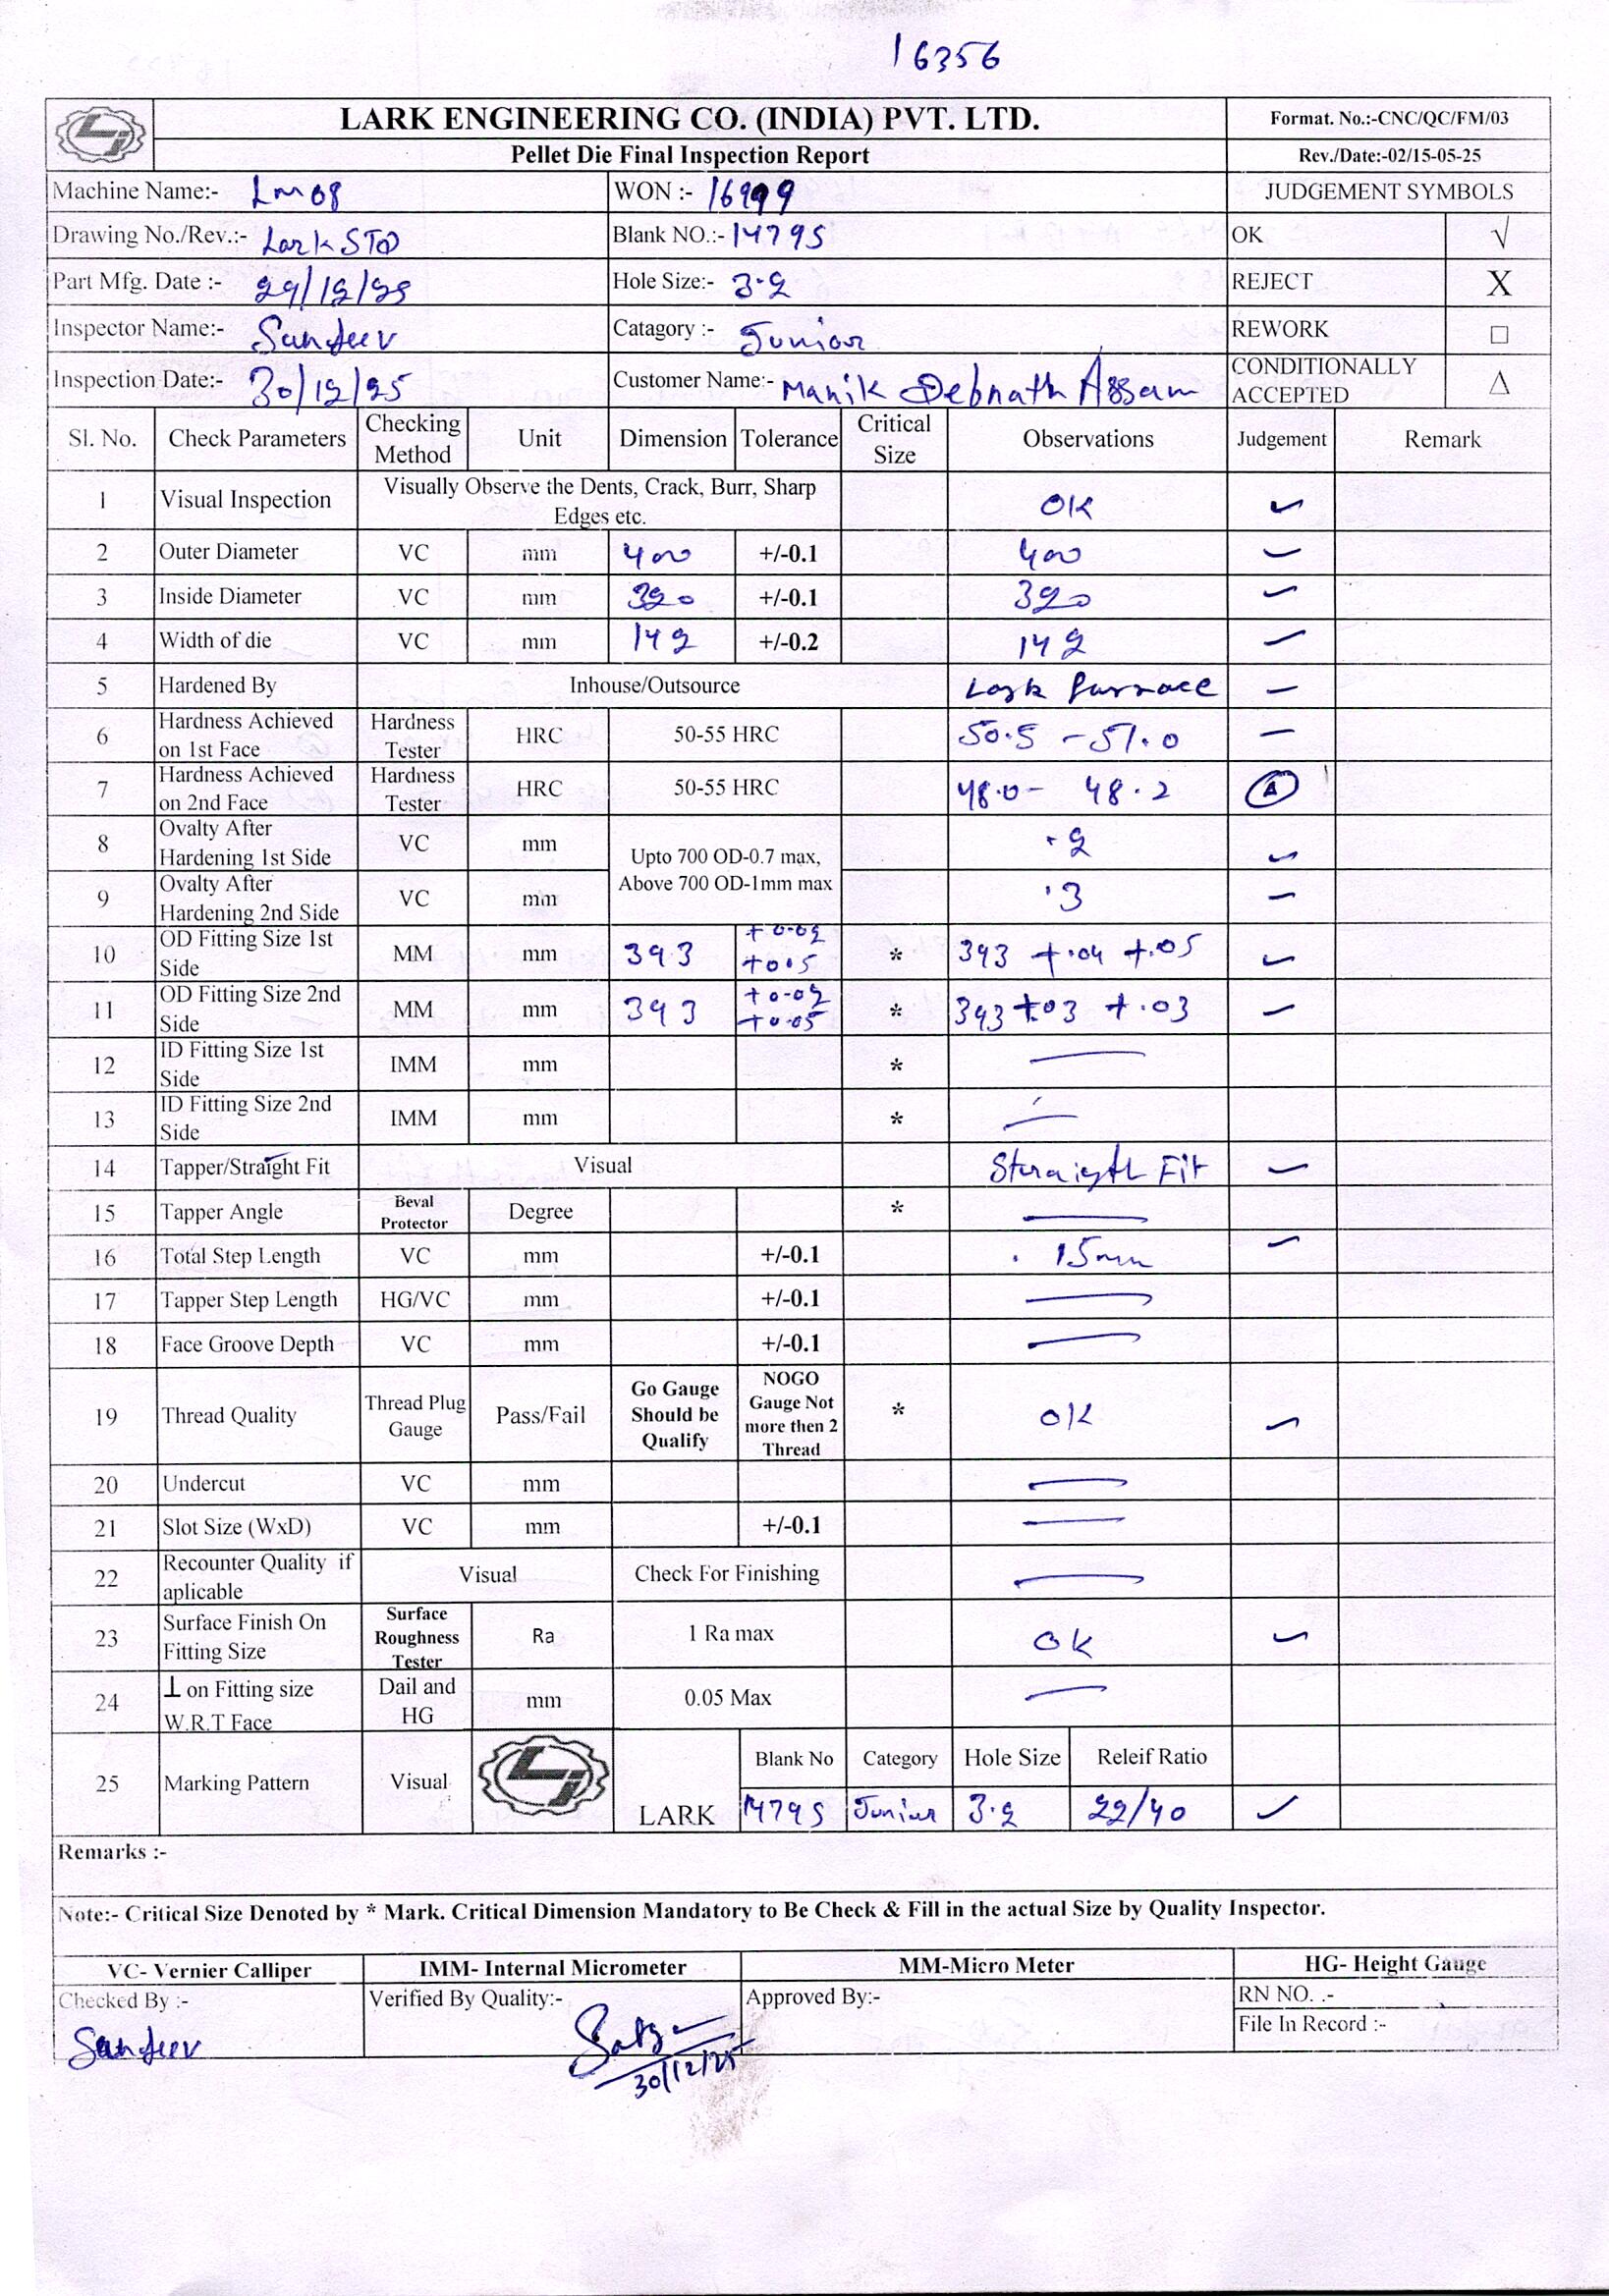 16356
LARK ENGINEERING CO. (INDIA) PVT. LTD. Format. No.:-CNC/QC/FM/03
Pellet Die Final Inspection Report Rev./Date:-02/15-05-25
Machine Name:- Lm08 WON :- 16999 JUDGEMENT SYMBOLS
Drawing No./Rev.:- Lark STD Blank NO.:- 14795 OK √
Part Mfg. Date :- 29/12/25 Hole Size:- 3.2 REJECT X
Inspector Name:- Sandeev Catagory :- Junior REWORK □
Inspection Date:- 30/12/25 Customer Name:- Manik Debnath Assam CONDITIONALLY ACCEPTED △
Sl. No. Check Parameters Checking Method Unit Dimension Tolerance Critical Size Observations Judgement Remark
1 Visual Inspection Visually Observe the Dents, Crack, Burr, Sharp Edges etc. OK ✓
2 Outer Diameter VC mm 400 +/-0.1 400 ✓
3 Inside Diameter VC mm 320 +/-0.1 320 ✓
4 Width of die VC mm 142 +/-0.2 142 ✓
5 Hardened By Inhouse/Outsource Lark furnace ✓
6 Hardness Achieved on 1st Face Hardness Tester HRC 50-55 HRC 50.5 - 51.0 ✓
7 Hardness Achieved on 2nd Face Hardness Tester HRC 50-55 HRC 48.0 - 48.2 △
8 Ovalty After Hardening 1st Side VC mm Upto 700 OD-0.7 max, Above 700 OD-1mm max .2 ✓
9 Ovalty After Hardening 2nd Side VC mm .3 ✓
10 OD Fitting Size 1st Side MM mm 393 +0.02 +0.5 * 393 +.04 +.05 ✓
11 OD Fitting Size 2nd Side MM mm 393 +0.02 +0.05 * 393 +.03 +.03 ✓
12 ID Fitting Size 1st Side IMM mm * —
13 ID Fitting Size 2nd Side IMM mm * —
14 Tapper/Straight Fit Visual Straigth Fit ✓
15 Tapper Angle Beval Protector Degree * —
16 Total Step Length VC mm +/-0.1 15mm ✓
17 Tapper Step Length HG/VC mm +/-0.1 —
18 Face Groove Depth VC mm +/-0.1 —
19 Thread Quality Thread Plug Gauge Pass/Fail Go Gauge Should be Qualify NOGO Gauge Not more then 2 Thread * OK ✓
20 Undercut VC mm —
21 Slot Size (WxD) VC mm +/-0.1 —
22 Recounter Quality if aplicable Visual Check For Finishing —
23 Surface Finish On Fitting Size Surface Roughness Tester Ra 1 Ra max OK ✓
24 ⊥ on Fitting size W.R.T Face Dail and HG mm 0.05 Max —
25 Marking Pattern Visual LARK Blank No Category Hole Size Releif Ratio
14795 Junior 3.2 22/40 ✓
Remarks :-
Note:- Critical Size Denoted by * Mark. Critical Dimension Mandatory to Be Check & Fill in the actual Size by Quality Inspector.
VC- Vernier Calliper IMM- Internal Micrometer MM-Micro Meter HG- Height Gauge
Checked By :- Verified By Quality:- Approved By:- RN NO. .-
Sandeev 30/12/25 File In Record :-